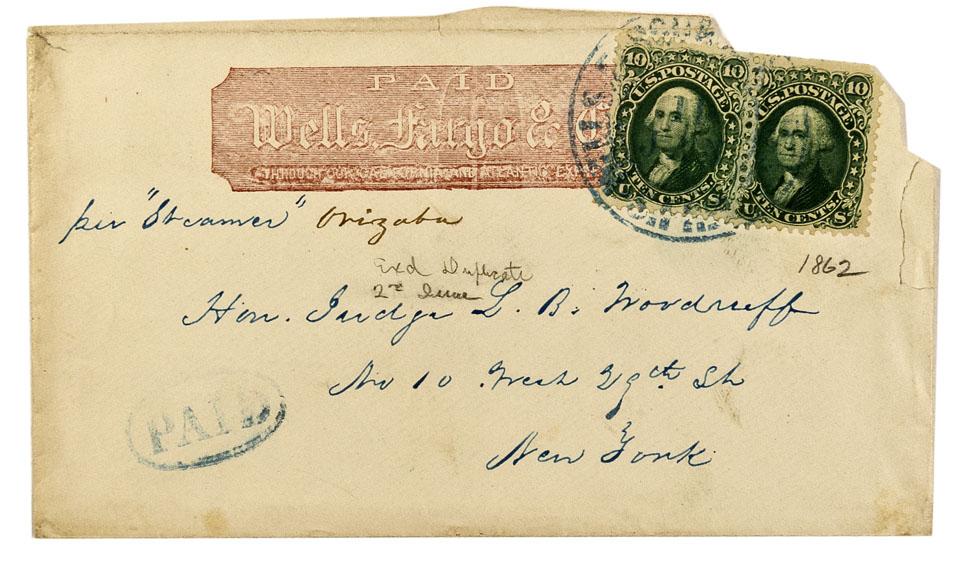 PAID
Wells, Fargo & C
THROUGH OUR CALIFORNIA AND ATLANTIC EX
10 U.S. POSTAGE 10
TEN CENTS.
U S
10 U.S. POSTAGE 10
TEN CENTS.
U S
per "Steamer" Orizaba
1862
Exd Duplicate
2nd Issue
Hon. Judge L. B. Woodruff
No 10 West 29th St
New York
PAID